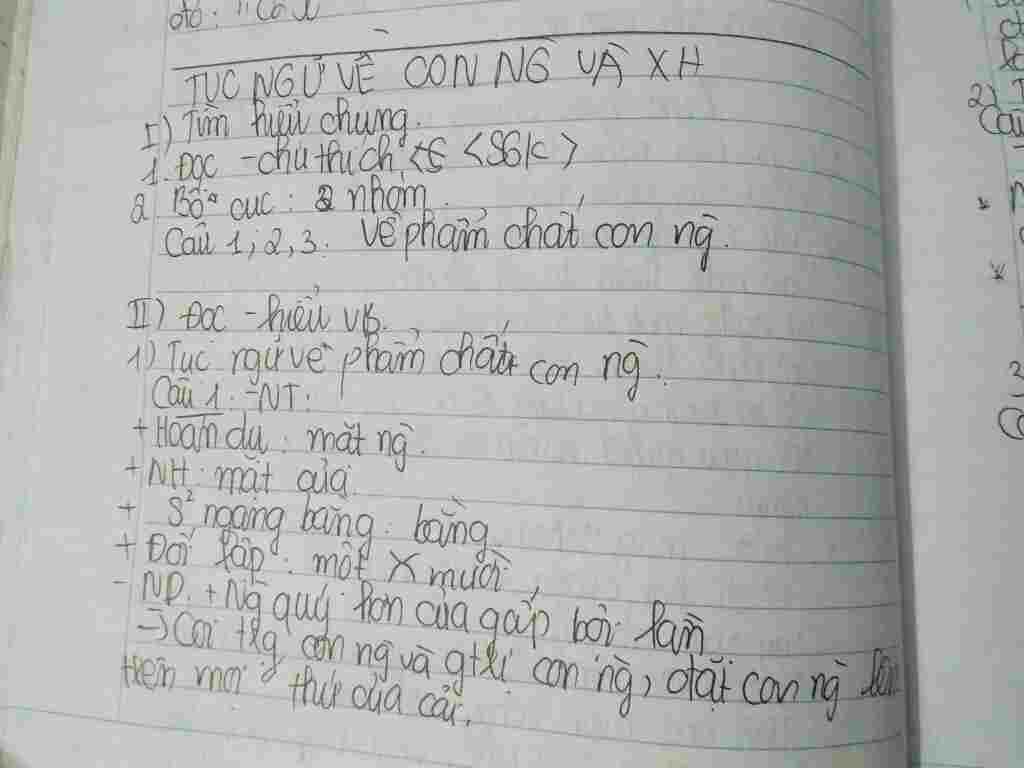 TỤC NGỮ VỀ CON NG VÀ XH
I) Tìm hiểu chung
1. Đọc - chú thích <SGK>
2 Bố cục: 2 nhóm
Câu 1, 2, 3. Về phẩm chất con ng.
II) Đọc - hiểu vb.
1) Tục ngữ về phẩm chất con ng.
Câu 1: -NT:
+ Hoán dụ: mặt ng.
+ NH: mặt của
+ S² ngang bằng: bằng
+ Đối lập: một X mười
- ND: + Ng quý hơn của gấp bội lần
→ Coi trg con ng và gtrị con ng, đặt con ng lên
trên mọi thứ của cải.
2)
Câu
*
*